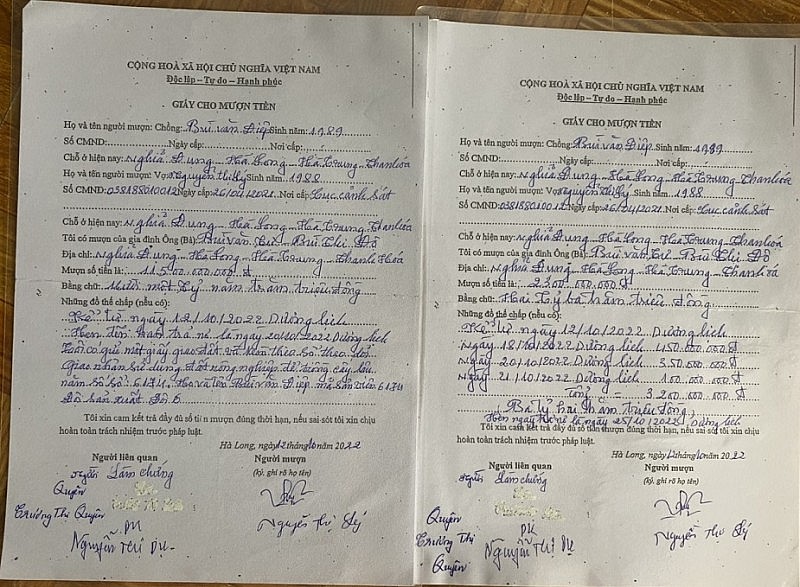 CỘNG HOÀ XÃ HỘI CHỦ NGHĨA VIỆT NAM
Độc lập – Tự do – Hạnh phúc
GIẤY CHO MƯỢN TIỀN
Họ và tên người mượn: Chồng: Bùi văn Điệp Sinh năm: 1989
Số CMND: Ngày cấp: Nơi cấp:
Chỗ ở hiện nay: Nghĩa Dụng Hà Long Hà Trung Thanh hóa
Họ và tên người mượn: Vợ: nguyễn thị lý Sinh năm 1988
Số CMND: 038188010012 Ngày cấp: 26/04/2021 Nơi cấp: cục cảnh sát
Chỗ ở hiện nay: Nghĩa Dụng Hà Long Hà Trung Thanh hóa
Tôi có mượn của gia đình Ông (Bà): Bùi văn Bùi Thị
Địa chỉ: Nghĩa Dụng Hà Long Hà Trung Thanh Hoá
Mượn số tiền là: 11,500.000.000 đ
Bằng chữ: Mười một tỷ năm trăm triệu đồng
Những đồ thế chấp (nếu có):
Kể từ ngày 12/10/2022 Dương lịch
Hẹn đến trả nợ là ngày 20/10/2022 Dương lịch
Tôi có gửi một giấy giao đất
nông nghiệp để trồng cây lâu
năm số 6174 Họ và tên Bùi văn Điệp mã 6174
Tôi xin cam kết trả đầy đủ số tiền mượn đúng thời hạn, nếu sai sót tôi xin chịu
hoàn toàn trách nhiệm trước pháp luật.
Hà Long, ngày 12 tháng 10 năm 2022
Người liên quan Người mượn
(ký, ghi rõ họ tên)
người Làm chứng
Quyên
Trương Thị Quyên
Nguyễn Thị Dự
Nguyễn Thị Lý
CỘNG HOÀ XÃ HỘI CHỦ NGHĨA VIỆT NAM
Độc lập – Tự do – Hạnh phúc
GIẤY CHO MƯỢN TIỀN
Họ và tên người mượn: Chồng: Bùi văn Điệp Sinh năm: 1989
Số CMND: Ngày cấp: Nơi cấp:
Chỗ ở hiện nay: Nghĩa Dụng Hà Long Hà Trung Thanh hóa
Họ và tên người mượn: Vợ nguyễn thị lý Sinh năm 1988
Số CMND: 038188010012 Ngày cấp: 26/04/2021 Nơi cấp: cục cảnh sát
Chỗ ở hiện nay: Nghĩa Dụng Hà Long Hà Trung Thanh hóa
Tôi có mượn của gia đình Ông (Bà): Bùi văn Bùi Thị
Địa chỉ: Nghĩa Dụng Hà Long Hà Trung Thanh hóa
Mượn số tiền là: 2.300.000.000 đ
Bằng chữ: Hai Tỷ ba trăm triệu đồng
Những đồ thế chấp (nếu có):
Kể từ ngày 12/10/2022 Dương lịch
Ngày 18/10/2022 Dương lịch 450.000.000 đ
Ngày 20/10/2022 Dương lịch 350.000.000 đ
Ngày 21/10/2022 Dương lịch 100.000.000 đ
tổng = 3.200.000.000 đ
(Ba tỷ hai trăm triệu đồng)
Hẹn ngày trả nợ là ngày 25/10/2022 Dương lịch
Tôi xin cam kết trả đầy đủ số tiền mượn đúng thời hạn, nếu sai sót tôi xin chịu
hoàn toàn trách nhiệm trước pháp luật.
Hà Long, ngày 12 tháng 10 năm 2022
Người liên quan Người mượn
(ký, ghi rõ họ tên)
người Làm chứng
Quyên
Trương Thị
Quyên
Nguyễn Thị Dự
Nguyễn Thị Lý